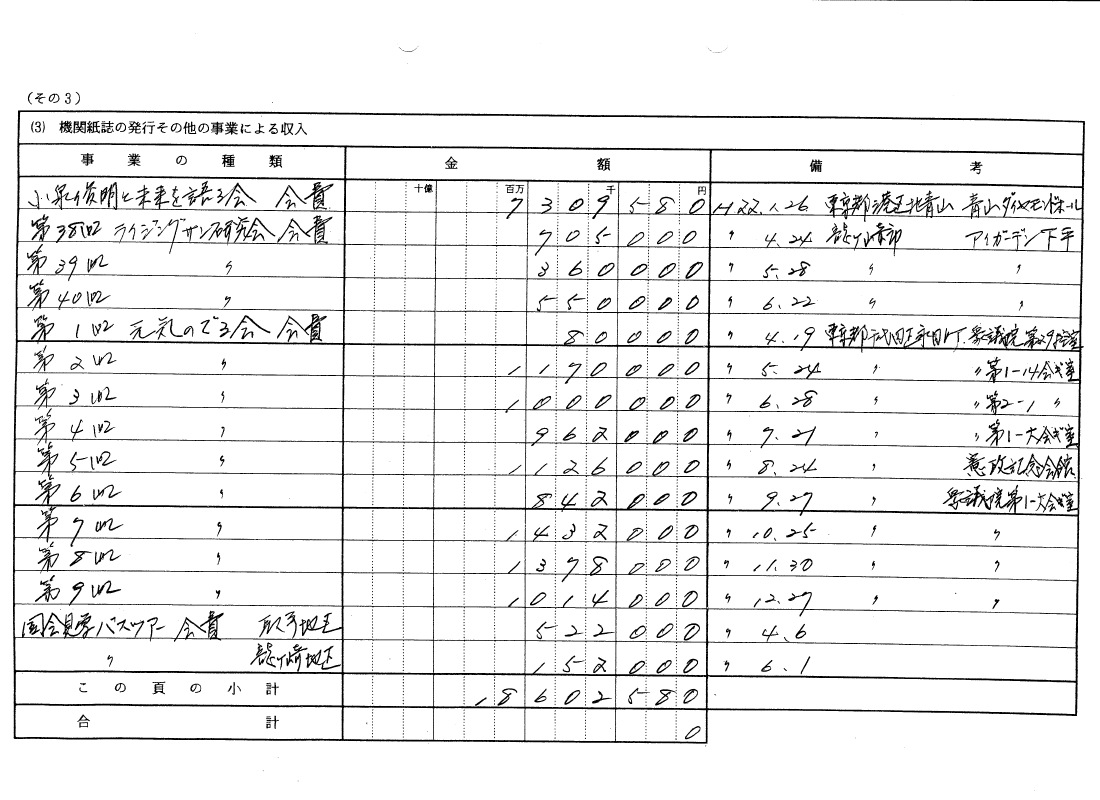 (その3)
(3) 機関紙誌の発行その他の事業による収入
事業の種類 金額 備考
十億 百万 千 円
小泉俊明と未来を語る会 会費 7309580 H22.1.26 東京都港区北青山 青山ダイヤモンドホール
第38回 ライジングサン研究会 会費 705000 〃 4.24 龍ヶ崎市 アイガーデン下平
第39回 〃 360000 〃 5.28 〃 〃
第40回 〃 550000 〃 6.22 〃 〃
第1回 元気のでる会 会費 80000 〃 4.19 東京都千代田区永田町 衆議院
第2回 〃 1170000 〃 5.24 〃 〃第1-14会議室
第3回 〃 1000000 〃 6.28 〃 〃第2-1 〃
第4回 〃 962000 〃 7.21 〃 〃第1-大会議室
第5回 〃 1126000 〃 8.24 〃 憲政記念会館
第6回 〃 842000 〃 9.27 衆議院第1-大会議室
第7回 〃 1432000 〃 10.25 〃 〃
第8回 〃 1378000 〃 11.30 〃 〃
第9回 〃 1014000 〃 12.27 〃 〃
国会見学バスツアー 会費 取手地区 522000 〃 4.6
〃 龍ヶ崎地区 152000 〃 6.1
この頁の小計 18602580
合計 0